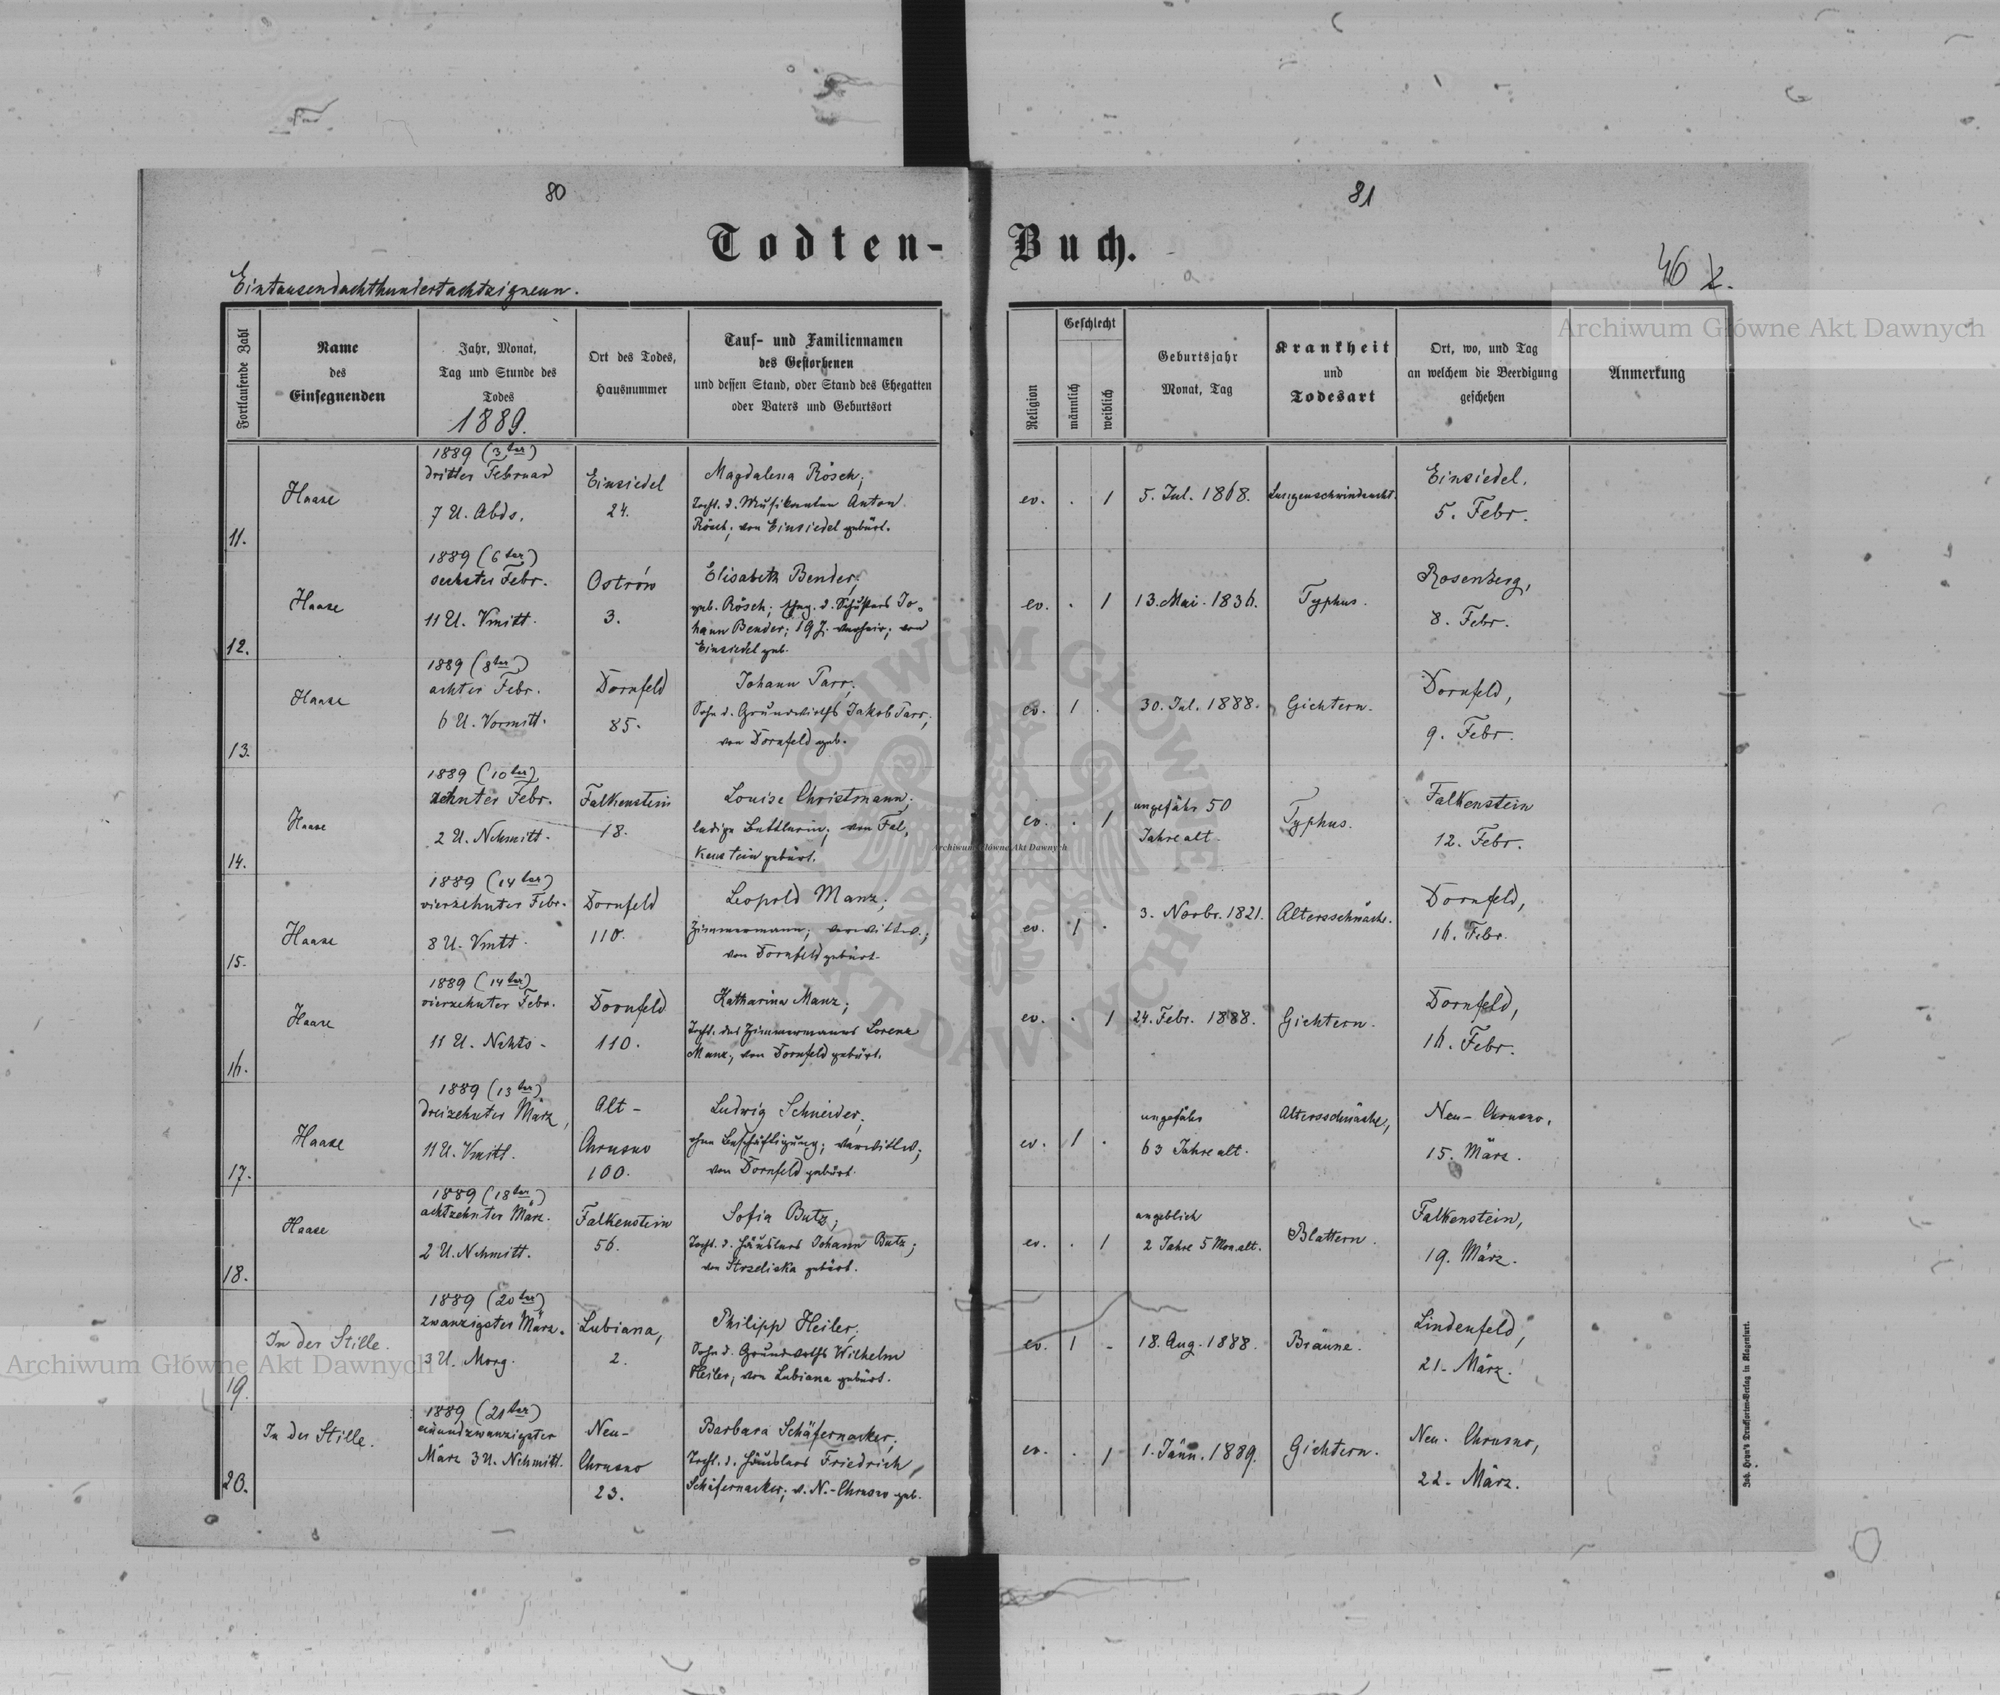 80
81
Todten-
Buch.
46
Eintausendachthundertachtzigneun.
Fortlaufende Zahl
Name
des
Einsegnenden
Jahr, Monat,
Tag und Stunde des
Todes
1889.
Ort des Todes,
Hausnummer
Tauf- und Familiennamen
des Gestorbenen
und dessen Stand, oder Stand des Ehegatten
oder Vaters und Geburtsort
Religion
Geschlecht
männlich
weiblich
Geburtsjahr
Monat, Tag
Krankheit
und
Todesart
Ort, wo, und Tag
an welchem die Beerdigung
geschehen
Anmerkung
11.
Haase
1889 (3ter)
dritter Februar
7 U. Abds.
Einsiedel
24.
Magdalena Rösch;
Tocht. d. Musikanten Anton
Rösch; von Einsiedel gebürt.
ev. . 1
5. Jul. 1868.
Lungenschwindsucht.
Einsiedel,
5. Febr.
12.
Haase
1889 (6ter)
sechster Febr.
11 U. Vmitt.
Ostrów
3.
Elisabeth Bender;
geb. Rösch; Eheg. d. Schusters Jo-
hann Bender; 19 J. verheir; von
Einsiedel geb.
ev. . 1
13. Mai. 1836.
Typhus.
Rosenberg,
8. Febr.
13.
Haase
1889 (8ter)
achter Febr.
6 U. Vormitt.
Dornfeld
85.
Johann Parr;
Sohn d. Grundwirths Jakob Parr;
von Dornfeld geb.
ev. 1 .
30. Jul. 1888.
Gichtern.
Dornfeld,
9. Febr.
14.
Haase
1889 (10ter)
zehnter Febr.
2 U. Nchmitt.
Falkenstein
18.
Louise Christmann;
ledige Bettlerin; von Fal-
kenstein gebürt.
ev. . 1
ungefähr 50
Jahre alt.
Typhus.
Falkenstein
12. Febr.
15.
Haase
1889 (14ter)
vierzehnter Febr.
8 U. Vmtt.
Dornfeld
110.
Leopold Manz;
Zimmermann; verwittw.;
von Dornfeld gebürt.
ev. 1 .
3. Novbr. 1821.
Altersschwäche.
Dornfeld,
16. Febr.
16.
Haase
1889 (14ter)
vierzehnter Febr.
11 U. Nchts.
Dornfeld
110.
Katharina Manz;
Tocht. des Zimmermanns Lorenz
Manz, von Dornfeld gebürt.
ev. . 1
24. Febr. 1888.
Gichtern.
Dornfeld,
16. Febr.
17.
Haase
1889 (13ter)
dreizehnter März,
11 U. Vmitt.
Alt-
Chrusno
100.
Ludwig Schneider;
ohne Beschäftigung; verwittw;
von Dornfeld gebürt.
ev. 1 .
ungefähr
63 Jahre alt.
Altersschwäche,
Neu-Chrusno,
15. März.
18.
Haase
1889 (18ter)
achtzehnter März.
2 U. Nchmitt.
Falkenstein
56.
Sofia Butz;
Tocht. d. Häuslers Johann Butz;
von Strzeliska gebürt.
ev. . 1
angeblich
2 Jahre 5 Mon. alt.
Blattern.
Falkenstein,
19. März.
19.
In der Stille.
1889 (20ter)
zwanzigster März.
3 U. Morg.
Lubiana,
2.
Philipp Heiler;
Sohn d. Grundwirths Wilhelm
Heiler, von Lubiana gebürt.
ev. 1 -
18. Aug. 1888.
Bräune.
Lindenfeld,
21. März.
20.
In der Stille.
1889 (21ter)
einundzwanzigster
März 3 U. Nchmitt.
Neu-
Chrusno
23.
Barbara Schäfernacker;
Tocht. d. Häuslers Friedrich
Schäfernacker; v. N.-Chrusno geb.
ev. . 1
1. Jänn. 1889.
Gichtern.
Neu-Chrusno,
22. März.
Joh. Heyn's Drucksorten-Verlag in Klagenfurt.
Archiwum Główne Akt Dawnych
Archiwum Główne Akt Dawnych
Archiwum Główne Akt Dawnych
ARCHIWUM GŁÓWNE AKT DAWNYCH